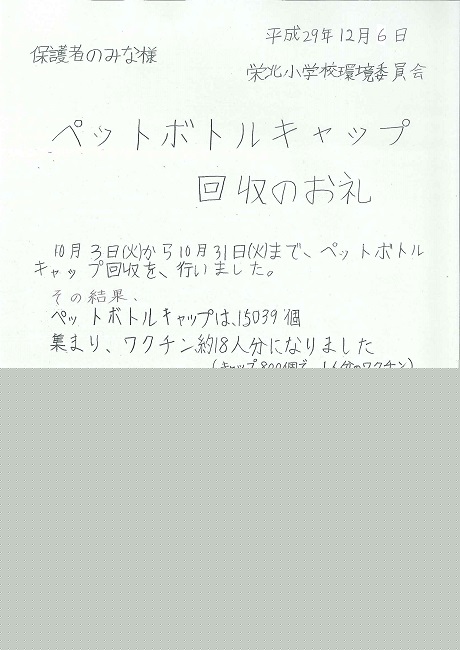 平成29年12月6日
保護者のみな様
栄北小学校環境委員会
ペットボトルキャップ
回収のお礼
10月3日(火)から10月31日(火)まで、ペットボトル
キャップ回収を、行いました。
その結果、
ペットボトルキャップは、15039個
集まり、ワクチン約18人分になりました
(キャップ800個で、1人分のワクチン)